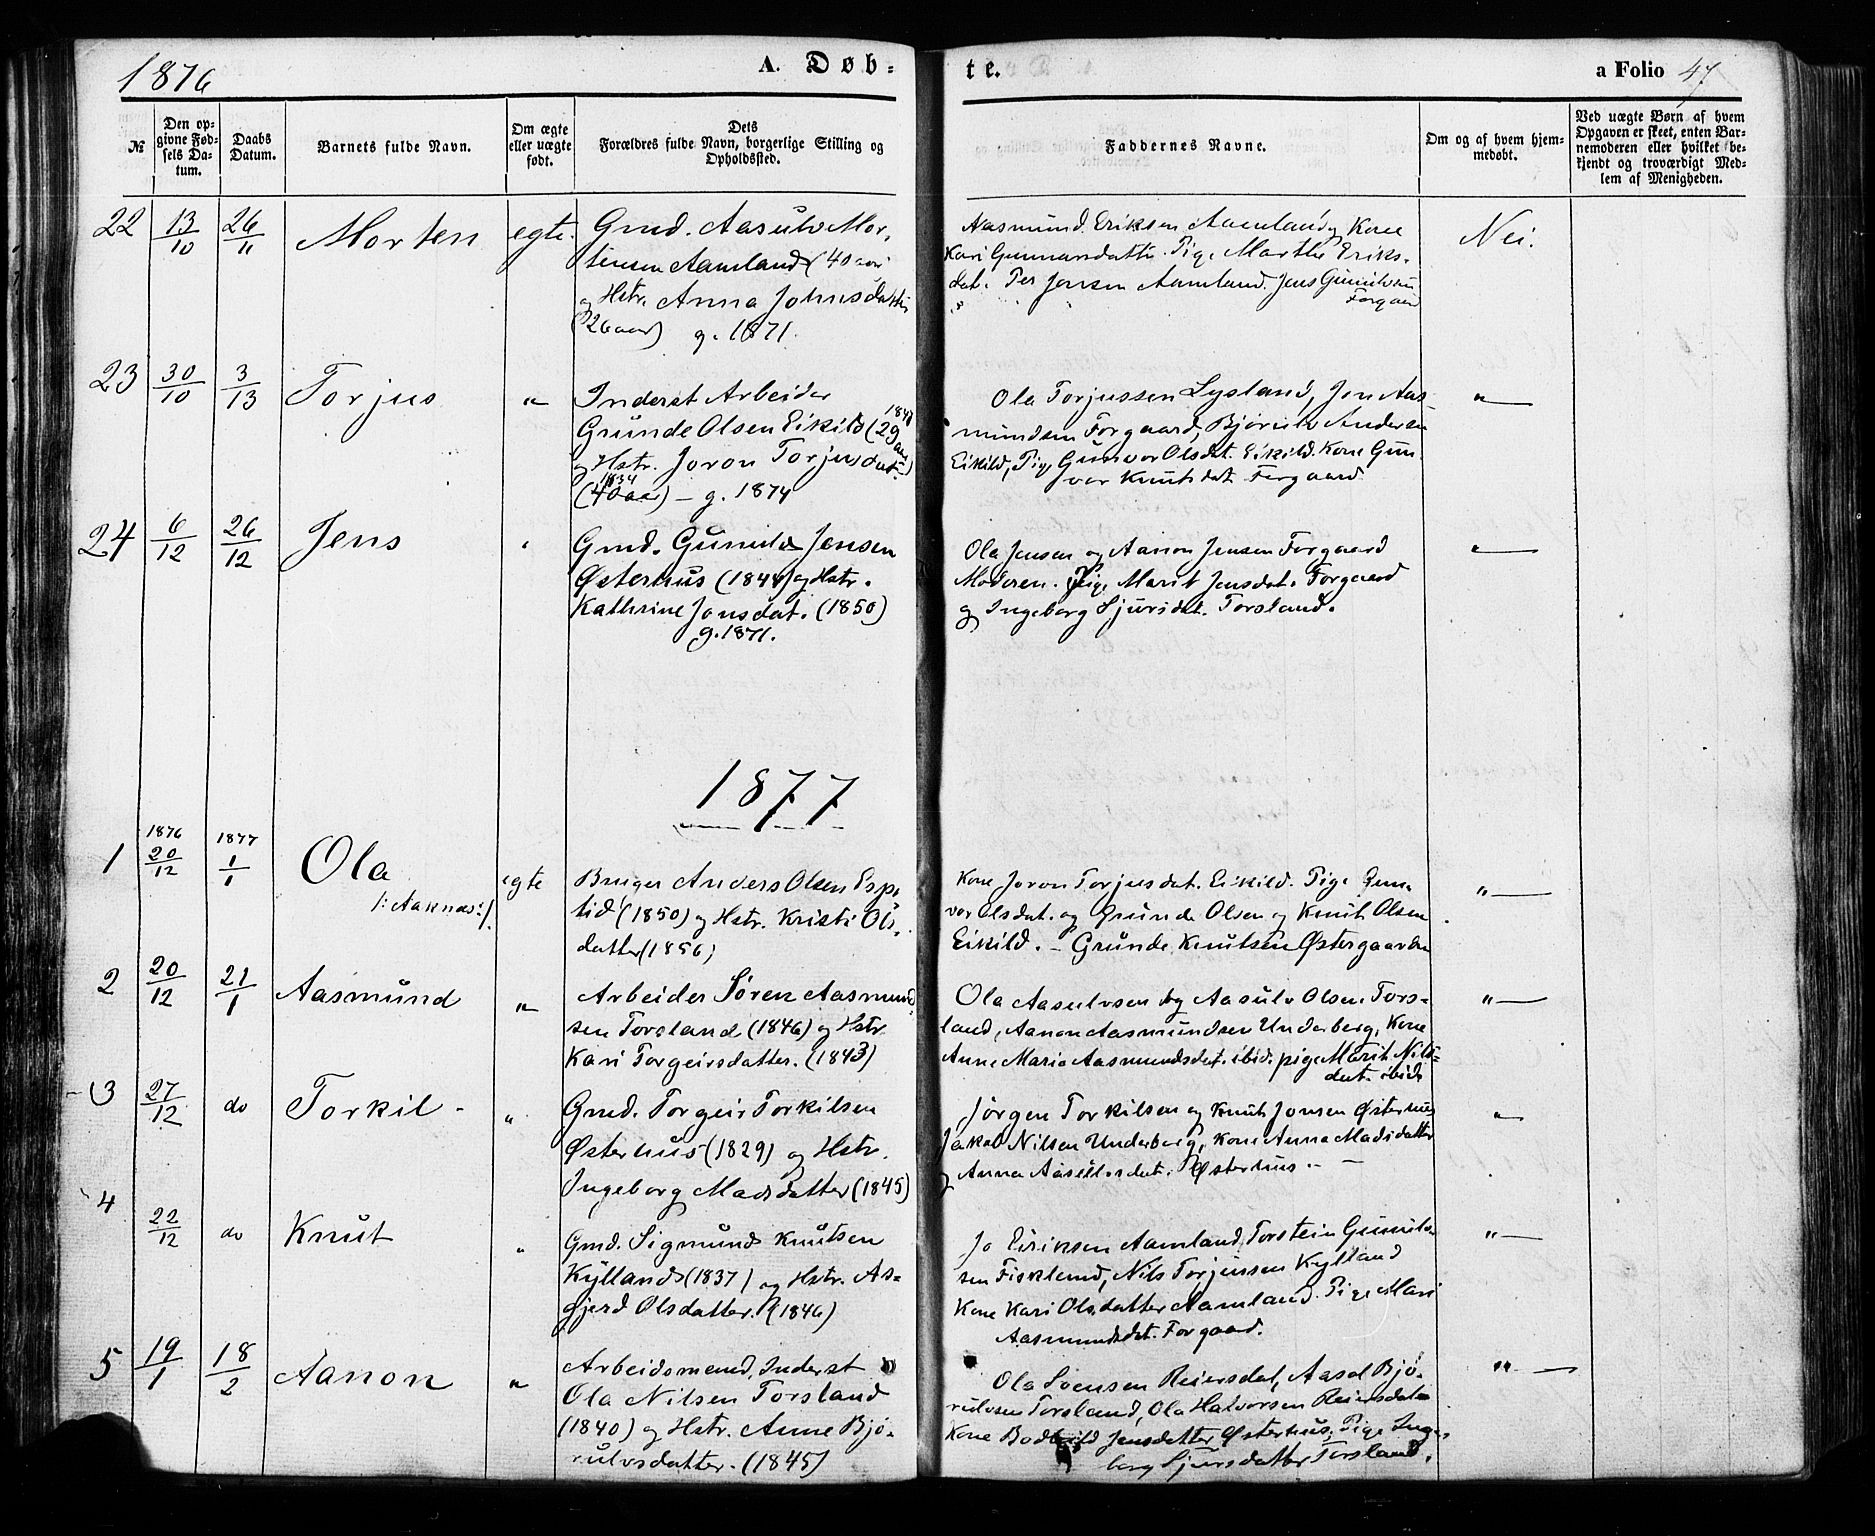 1876
A. Døb-
te.
a Folio 47
№
Den op-
givne Fød-
sels Da-
tum.
Daabs
Datum.
Barnets fulde Navn.
Om ægte
eller uægte
født.
Dets
Forældres fulde Navn, borgerlige Stilling og
Opholdssted.
Faddernes Navne.
Om og af hvem hjem-
medøbt.
Ved uægte Børn af hvem
Opgaven er skeet, enten Bar-
nemoderen eller hvilket be-
kjendt og troværdigt Med-
lem af Menigheden.
22 13/10 26/11 Morten egte.
Gmd. Aasulv Mor-
tensen Aamland (40 aar)
og Hstr. Anna Johnsdatter
(26 aar) g. 1871.
Aasmund Eriksen Aamland og Kone
Kari Gunnarsdatter. Pige Marthe Eriks-
dat. Per Jensen Aamland. Jens Gunulvsen
Forgaard
Nei.
23 30/10 3/13 Torjus "
Inderst Arbeider
1847
Grunde Olsen Eikild (29 aar)
og Hstr. Joron Torjusdat.
1834
(40 aar) – g. 1874
Ola Torjussen Lysland, Jon Aas-
mundsen Forgaard, Bjørulv Andersen
Eikild, Pige Gunvor Olsdat. Eikild. Kone Gun
vor Knutsdat. Forgaard
" —
24 6/12 26/12 Jens "
Gmd. Gunulv Jensen
Østerhus (1844) og Hstr.
Kathrine Jonsdat. (1850)
g. 1871.
Ola Jensen og Aanon Jensen Forgaard
Moderen. Pige Marit Jensdat. Forgaard
og Ingeborg Sjursdat. Torsland.
" —
1877
1 1876 20/12 1877 1/1 Ola egte
/: Aaknes :/
Bruger Anders Olsen Espe-
tid (1850) og Hstr. Kristi Ols-
datter (1856)
Kone Joron Torjusdat. Eikild. Pige Gun-
vor Olsdat. og Grunde Olsen og Knut Olsen
Eikild. – Grunde Knutsen Østergaarden
" —
2 20/12 21/1 Aasmund "
Arbeider Søren Aasmund-
sen Torsland (1846) og Hstr.
Kari Torgeirsdatter. (1843)
Ola Aasulvsen og Aasulv Olsen Tors-
land, Aanon Aasmundsen Underberg, Kone
Anne Maria Aasmundsdat. ibid. pige Marit Nils-
dat. ibid.
" —
3 27/12 do Torkil "
Gmd. Torgeir Torkilsen
Østerhus (1829) og Hstr.
Ingeborg Madsdatter (1845)
Jørgen Torkilsen og Knut Jonsen Østerhus
Jakob Nilsen Underberg, Kone Anna Madsdatter
og Anna Aasulvsdat. Østerhus. –
" —
4 22/12 do Knut "
Gmd. Sigmund Knutsen
Kylland (1837) og Hstr. As-
gjerd Olsdatter. (1846)
Jo Eiriksen Aamland, Torstein Gunulv-
sen Fisklend, Nils Torjussen Kylland
Kone Kari Olsdatter Aamland. Pige Mari
Aasmundsdat. Forgaard.
" —
5 19/1 18/2 Aanon "
Arbeidsmand, Inderst
Ola Nilsen Torsland
(1840) og Hstr. Anne Bjø-
rulvsdatter. (1845)
Ola Svensen Reiersdal, Aasel Bjø-
rulvsen Torsland, Ola Halvorsen Reiersdal
Kone Bodhild Jensdatter Østerhus, Pige Inge-
borg Sjursdatter Torsland.
" —